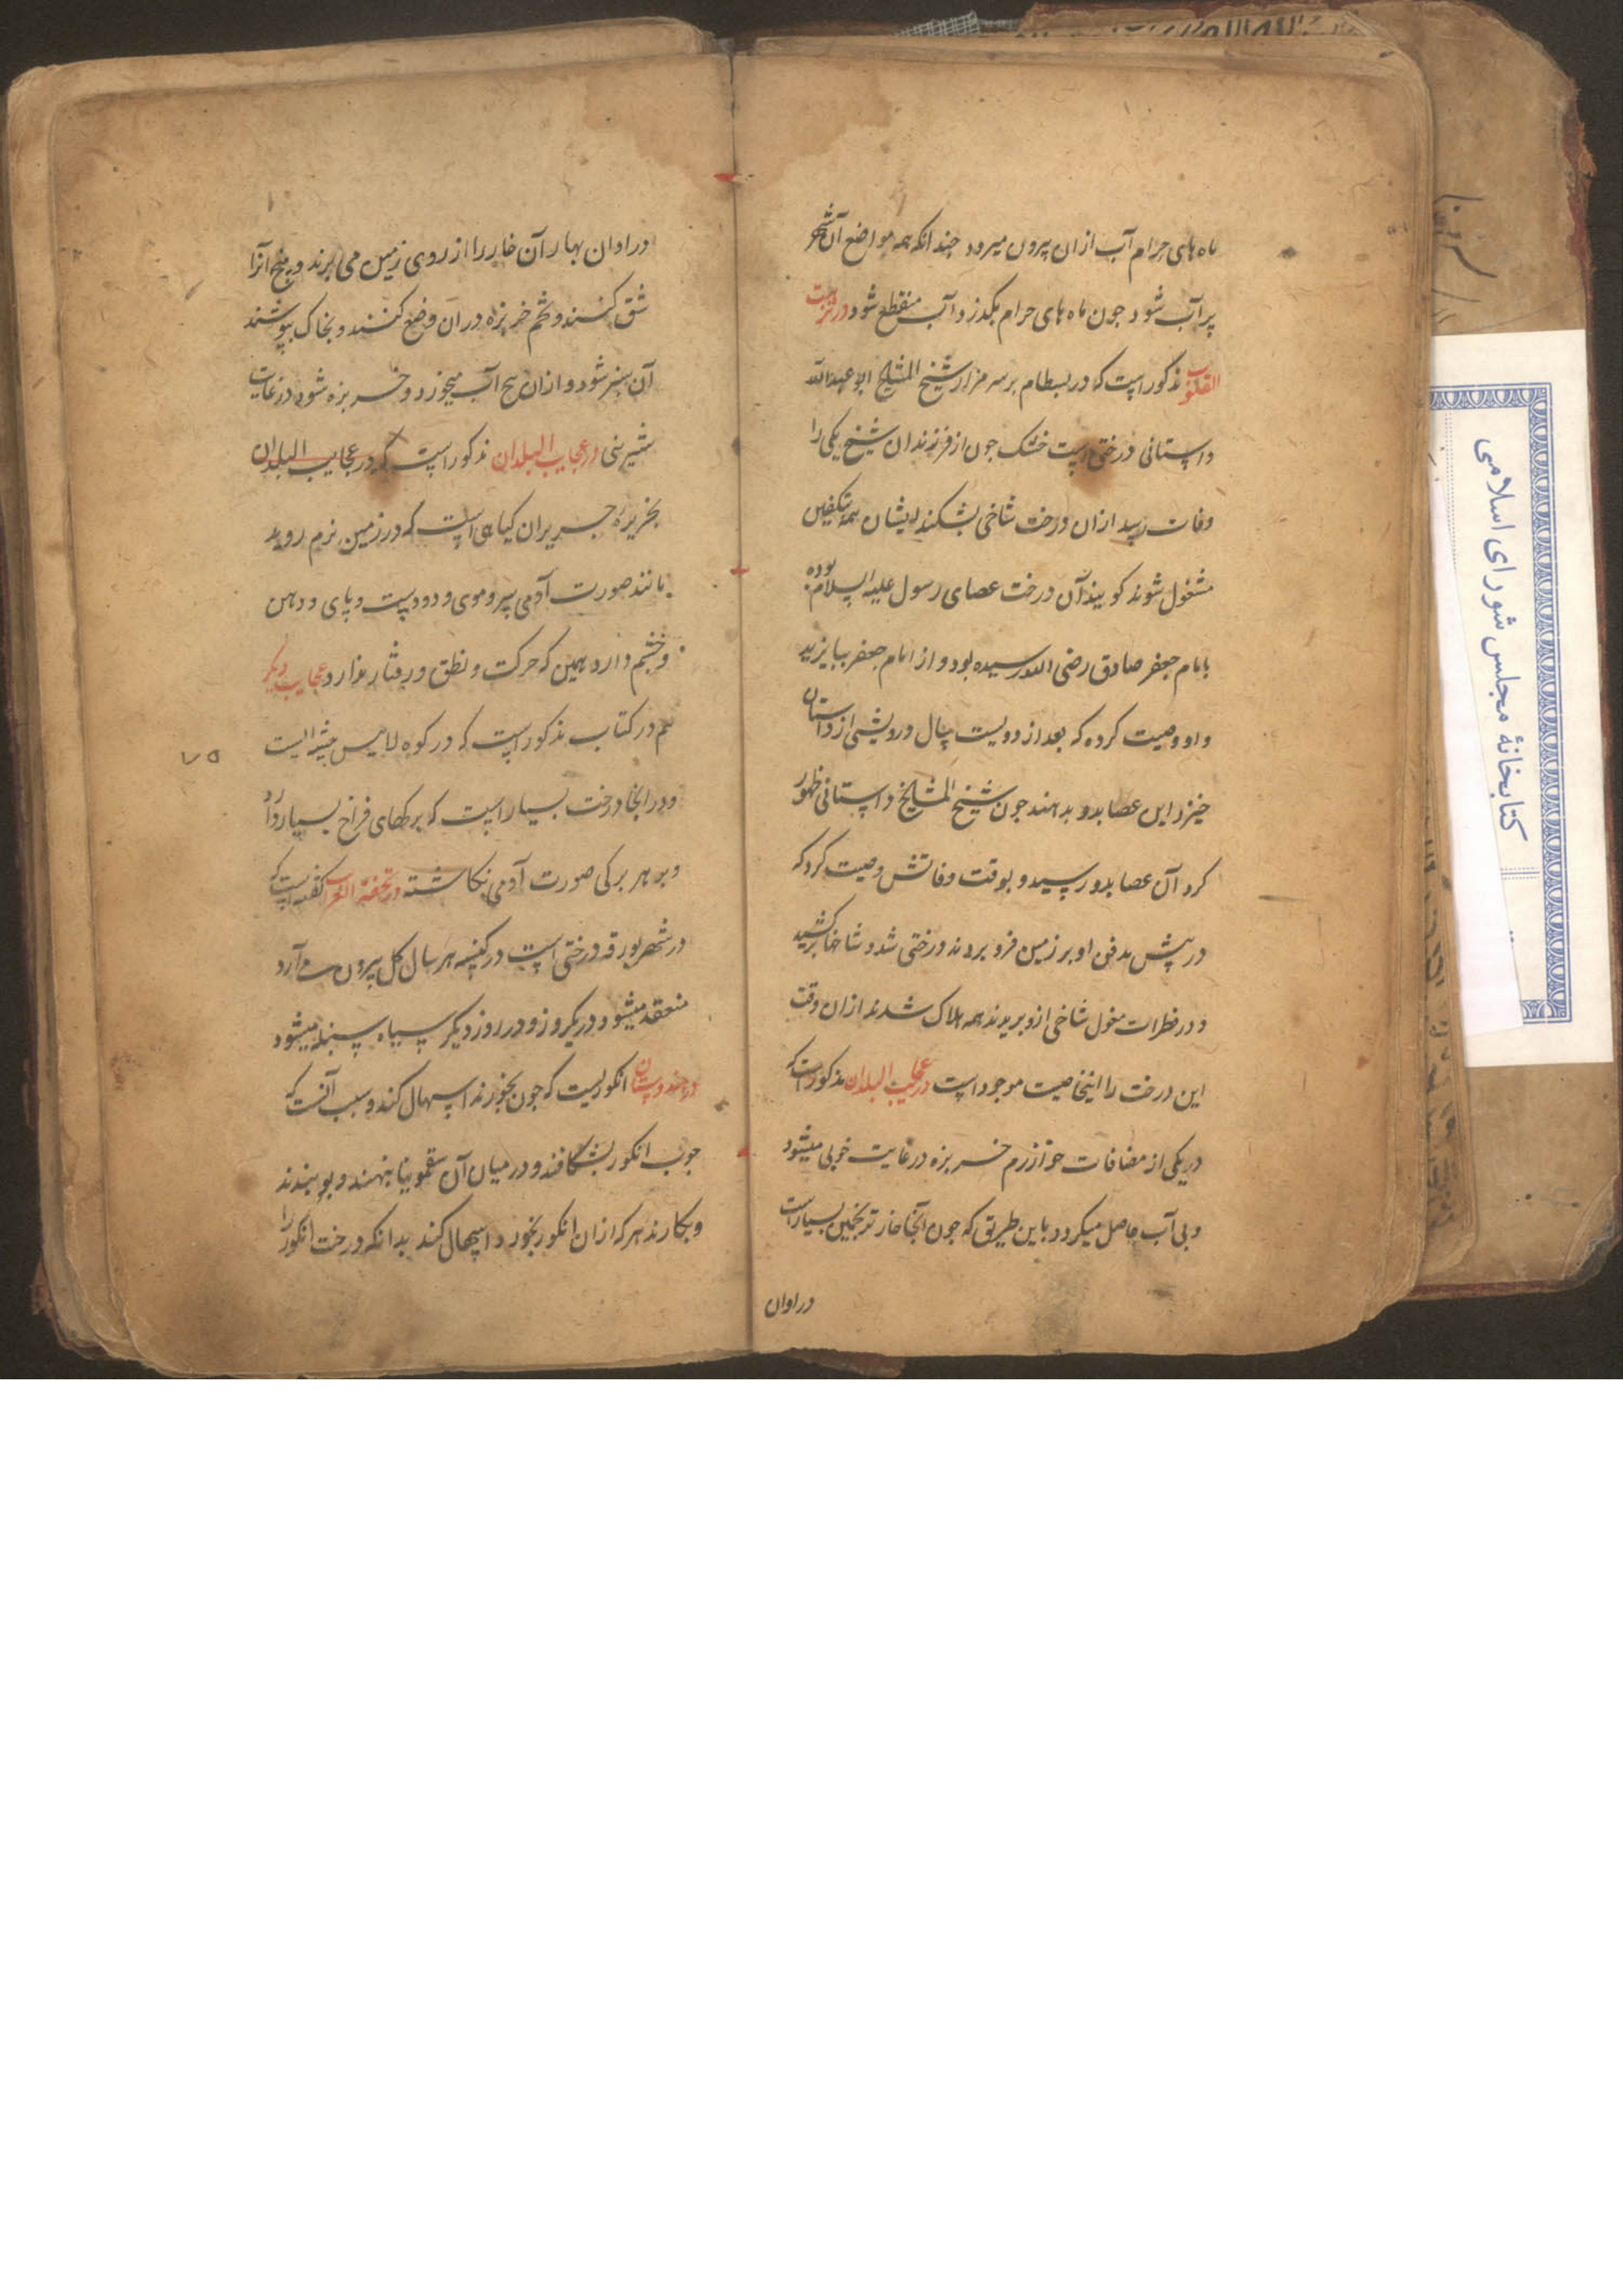 ماه‌های حرام آب ازان بیرون میرود چندانکه همه مواضع آن شهر
پر آب شود چون ماه‌های حرام بگذرد آب منقطع شود در نزهت
القلوب مذکور است که در بسطام بر سر مزار شیخ المشایخ ابو عبدالله
داستانی درختی است خشک چون از فرزندان شیخ یکی را
وفات رسد ازان درخت شاخی بشکند ایشان بتکفین
مشغول شوند گویند آن درخت عصای رسول علیه السلام بوده
بامام جعفر صادق رضی الله رسیده بود و از امام جعفر ببایزید
و او وصیت کرده که بعد از دویست سال درویشی از داستان
خیزد این عصا بدو بدهند چون شیخ المشایخ داستانی ظهور
کرد آن عصا بدو رسید و بوقت وفاتش وصیت کرد که
در پیش مدفن او بر زمین فرو بردند درختی شد و شاخها برکشید
و در فطرات مغول شاخی ازو بریدند همه هلاک شدند ازان وقت
این درخت را اینخاصیت موجود است در عجایب البلدان مذکور است که
در یکی از مضافات خوارزم خربزه در غایت خوبی میشود
و بی آب حاصل میگردد باین طریق که چون آنجا خار ترنجبین بسیار است
در اوان
در اوان بهار آن خار را از روی زمین می‌برند و بیخ آنرا
شق کنند و تخم خربزه دران وضع کنند و بخاک بپوشند
آن سبز شود و ازان بیخ آب میخورد و خربزه شود در غایت
شیرینی در عجایب البلدان مذکور است که در عجایب البلدان
بجزیره جریران گیاهی است که در زمین نرم روید
مانند صورت آدمی بسر و موی و دو دست و پای و دهن
و چشم دارد همین که حرکت و نطق و رفتار ندارد عجایب دیگر
هم در کتاب مذکور است که در کوه لامیس بیشه ایست
۷۵
و در انجا درخت بسیار است که برگهای فراخ بسیار دارد
و بر هر برگی صورت آدمی نگاشته در تحفة الغرایب گفته است که
در شهر بورقه درختی است در کنیسه هر سال گل بیرون می آرد
منعقد میشود در یکروز و در روز دیگر سیاه
در هندوستان انگوریست که چون بخورند اسهال کند و سبب آنست که
چوب انگور بشگافند و در میان آن سقمونیا بنهند و بربندند
و بکارند هر که ازان انگور بخورد اسهال کند بدانکه درخت انگور را
کتابخانهٔ مجلس شورای اسلامی